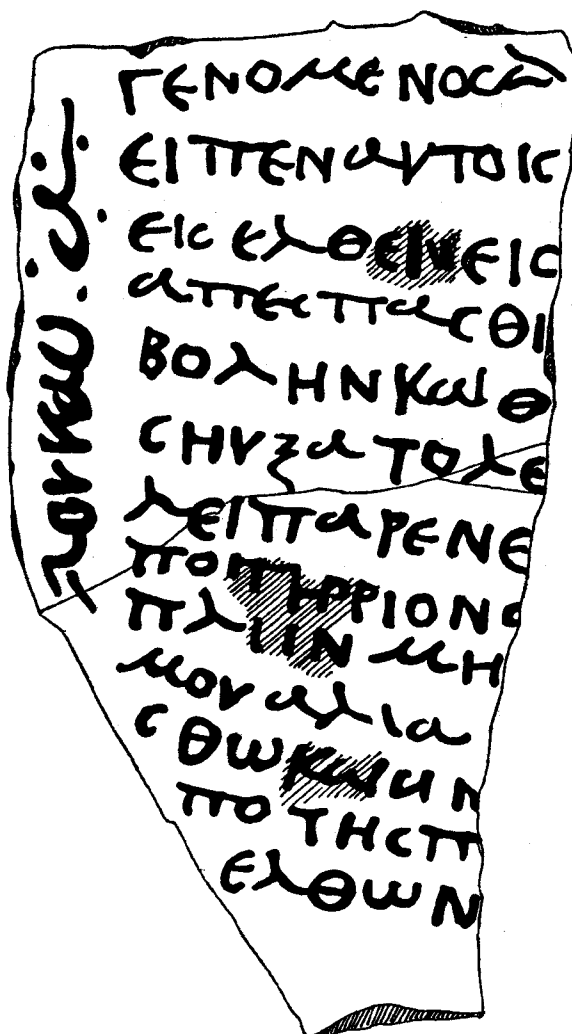 ΓΕΝΟΜΕΝΟϹΔ
ΕΙΠΕΝΑΥΤΟΙϹ
ΕΙϹΕΛΘΕΙΝΕΙϹ
ΑΠΕϹΠΑϹΘΙ
ΒΟΛΗΝΚΑΙΘ
ϹΗΥΞΑΤΟΛΕ
ΛΕΙΠΑΡΕΝΕ
ΠΟΙΤΗΡΡΙΟΝΟ
ΠΛΗΝΜΗ
ΜΟΥΑΛΙΑ
ϹΘΩΚΑΙΑΝ
ΠΟΤΗϹΠ
ΕΛΘΩΝ